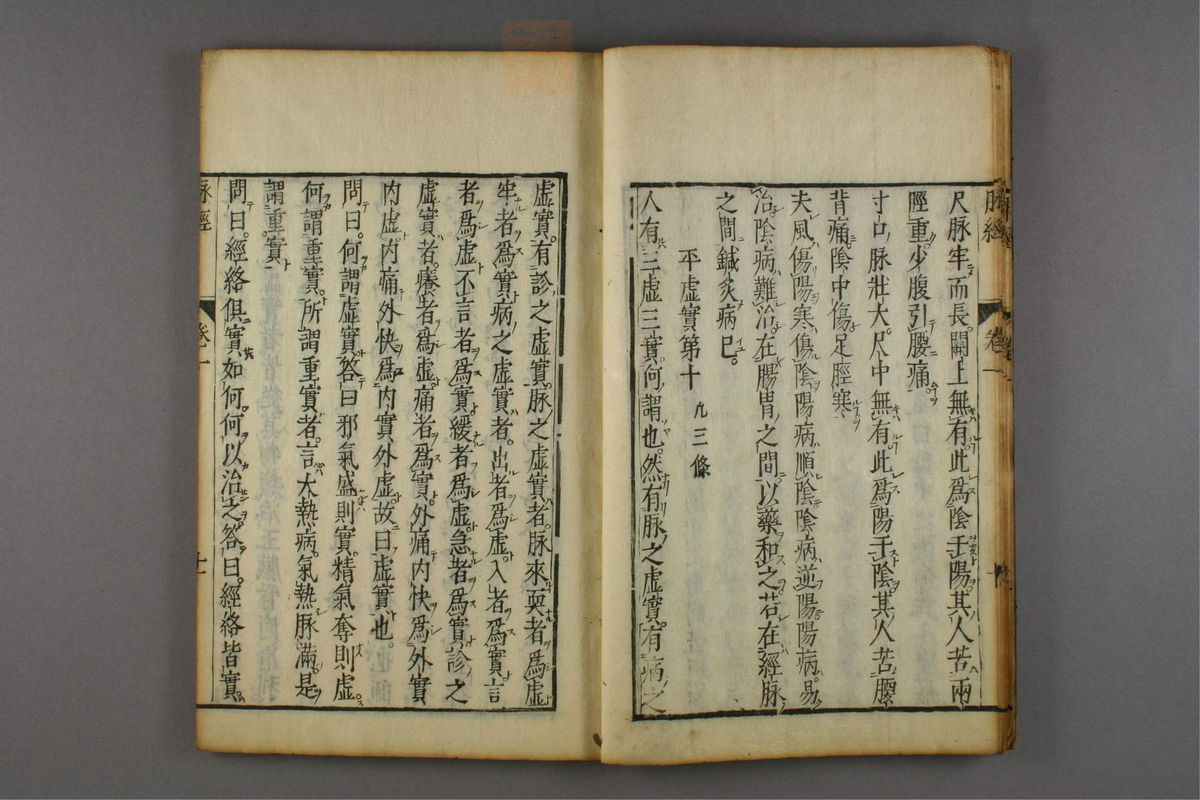 脉經 卷一 十
尺脉牢而長。關上無有。此爲陰干陽。其人苦兩
脛重。少腹引腰痛。
寸口脉壯大。尺中無有。此爲陽干陰。其人苦腰
背痛。陰中傷。足脛寒。
夫風傷陽。寒傷陰。陽病順陰。陰病逆陽。陽病易
治。陰病難治。在腸胃之間。以藥和之。若在經脉
之間。鍼灸病已。
平虛實第十 凡三條
人有三虛三實。何謂也。然。有脉之虛實。有病之
虛實。有診之虛實。脉之虛實者。脉來耎者爲虛
牢者爲實。病之虛實者。出者爲虛。入者爲實。言
者爲虛。不言者爲實。緩者爲虛。急者爲實。診之
虛實者。癢者爲虛。痛者爲實。外痛內快。爲外實
內虛。內痛外快。爲內實外虛。故曰虛實也。
問曰。何謂虛實。答曰。邪氣盛則實。精氣奪則虛。
何謂重實。所謂重實者。言大熱病。氣熱脉滿。是
謂重實。
問曰。經絡俱實。如何。何以治之。答曰。經絡皆實。
脉經 卷一 十一